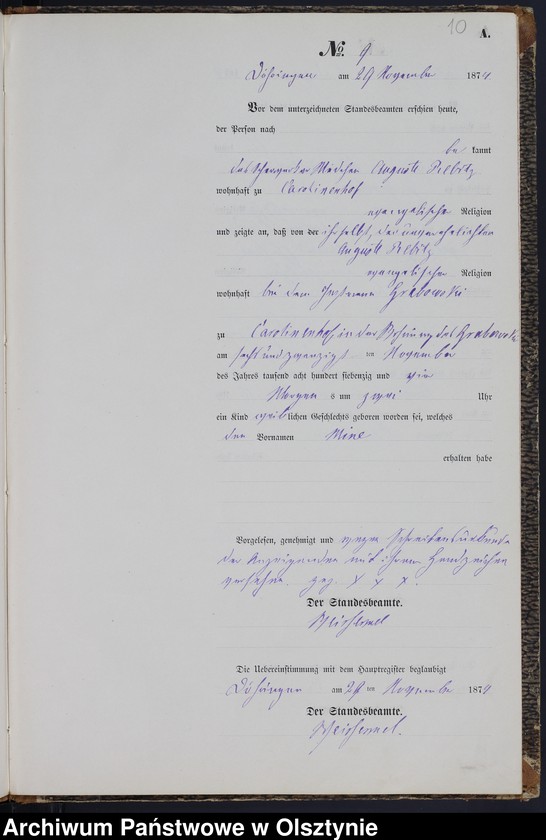 10
A.
No. 9.
Döhringen am 29 November 1874
Vor dem unterzeichneten Standesbeamten erschien heute,
der Person nach
be kannt
das Scharwerker Mädchen Auguste
wohnhaft zu Carolinenhof
evangelischer Religion
und zeigte an, daß von der ihr selbst, der unverehelichten
Auguste
evangelischer Religion
wohnhaft bei dem Instmann Grabowski
zu Carolinenhof, in der Wohnung des Grabowski
am sechs und zwanzigsten November
des Jahres tausend acht hundert siebenzig und vier
Morgens um zwei Uhr
ein Kind weiblichen Geschlechts geboren worden sei, welches
den Vornamen Mine
erhalten habe
Vorgelesen, genehmigt und wegen Schreibensunkunde
der Anzeigenden mit ihrem Handzeichen
versehen. gez. X X X.
Der Standesbeamte.
Die Uebereinstimmung mit dem Hauptregister beglaubigt
Döhringen am 29 ten November 1874
Der Standesbeamte.
Archiwum Państwowe w Olsztynie